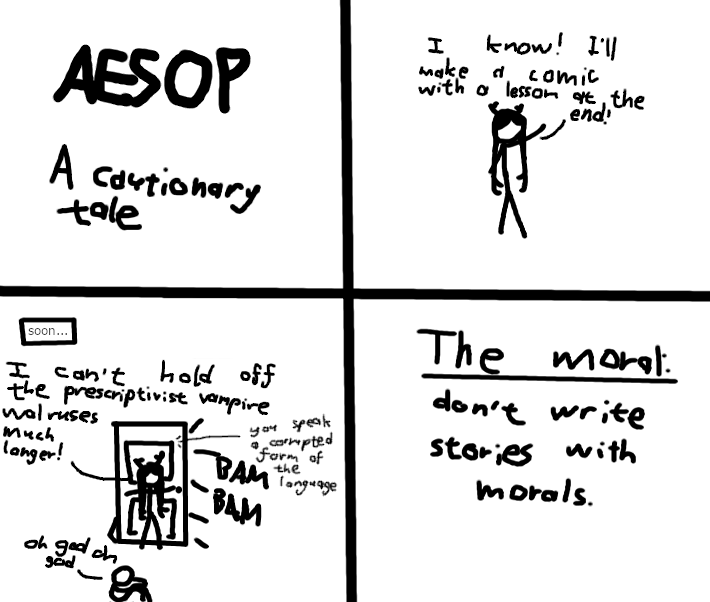 AESOP
A cautionary
tale
I know! I'll
make a comic
with a lesson at the
end!
soon...
I can't hold off
the prescriptivist vampire
walruses
much
longer!
you speak
a corrupted
form of
the
language
BAM
BAM
oh god oh
god
The moral:
don't write
stories with
morals.